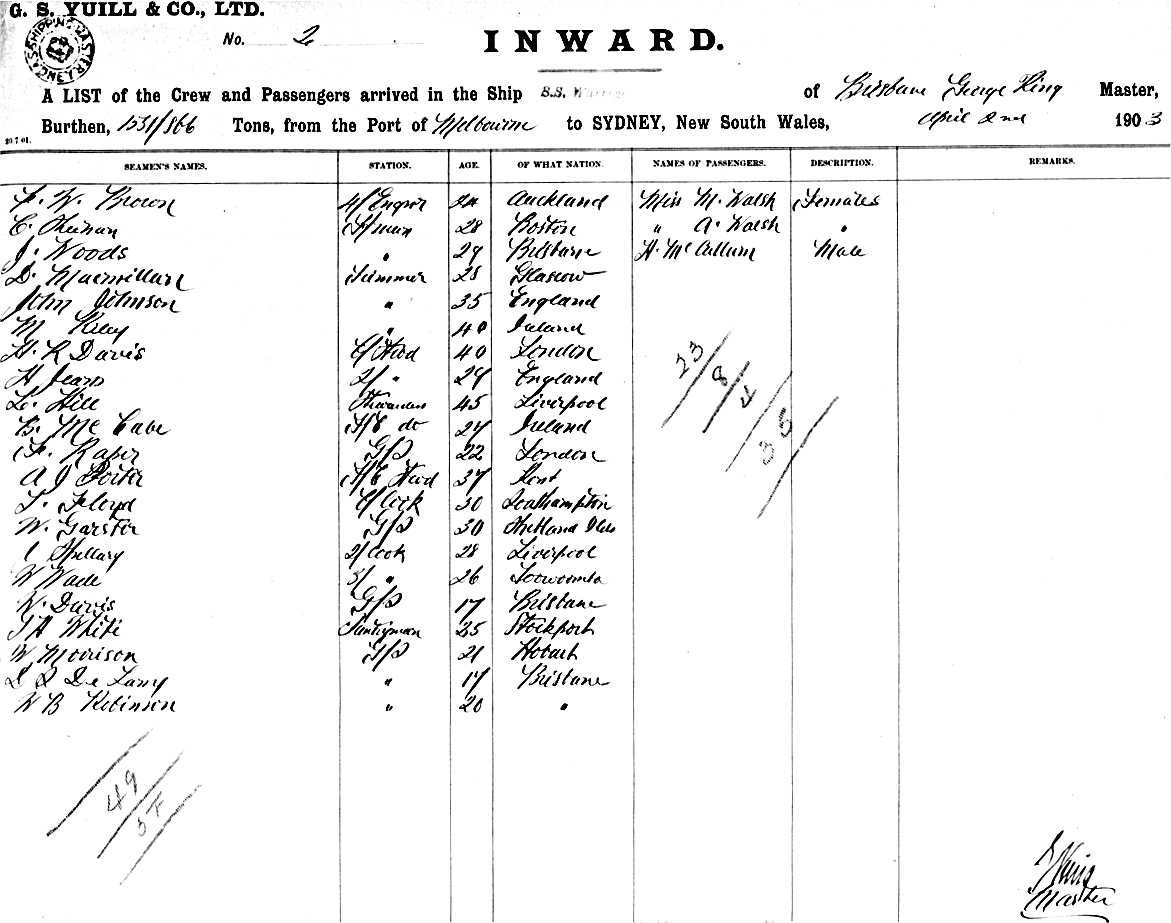 G. S. YUILL & CO., LTD.
SHIPPING MASTER
No. 2
INWARD.
A LIST of the Crew and Passengers arrived in the Ship S.S. of Brisbane George King Master,
Burthen, 1531/866 Tons, from the Port of Melbourne to SYDNEY, New South Wales, April 2nd 1903
SEAMEN'S NAMES. STATION. AGE. OF WHAT NATION. NAMES OF PASSENGERS. DESCRIPTION. REMARKS.
W. Brown 4/Engnr 24 Auckland Miss M. Walsh Females
C. F/man 28 Boston " A. Walsh "
J. Woods " 29 Brisbane H. McCallum Male
D. Macmillan Trimmer 28 Glasgow
John Johnson " 35 England
M Kiley " 40 Ireland
H. R Davis C/Stwd 40 London
H 2/ " 29 England
Hill Stwardess 45 Liverpool
B. McCabe S/C do 27 Ireland
F. Raper G/S 22 London
A J Porter F/C Stwd 37 Kent
T. Floyd C/Cook 30 Southampton
W. Garster G/S 30 Shetland Isles
Spellary 2/Cook 28 Liverpool
W Wade 3/ " 26 Toowoomba
W. Davis G/S 17 Brisbane
J H White Pantryman 25 Stockport
W Morrison G/S 21 Hobart
De Lamy " 17 Brisbane
W B Robinson " 20 "
23/8/4/35
49/37
King
Master